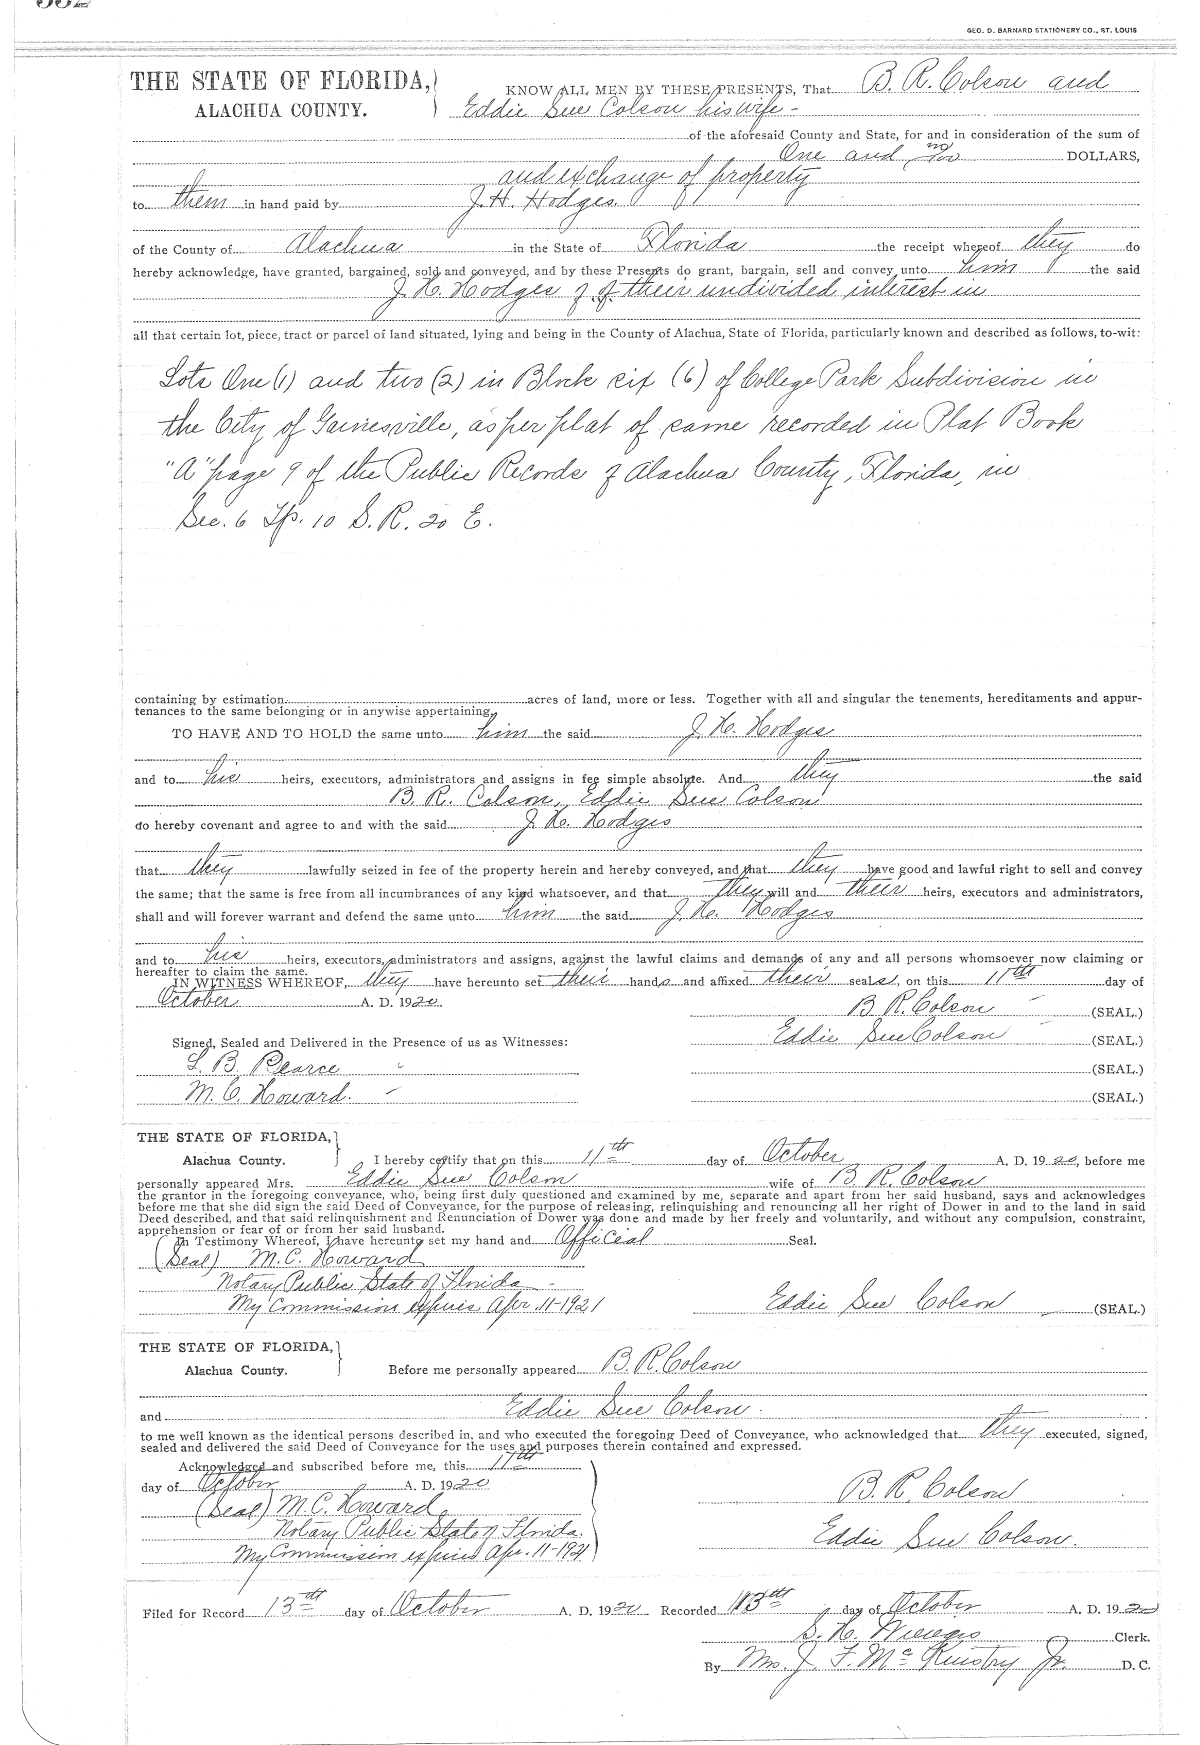 GEO. D. BARNARD STATIONERY CO., ST. LOUIS
THE STATE OF FLORIDA,
ALACHUA COUNTY.
KNOW ALL MEN BY THESE PRESENTS, That B. R. Colson and
Eddie Sue Colson his wife -
of the aforesaid County and State, for and in consideration of the sum of
One and no/100 DOLLARS,
and exchange of property
to them in hand paid by J. H. Hodges.
of the County of Alachua in the State of Florida the receipt whereof they do
hereby acknowledge, have granted, bargained, sold and conveyed, and by these Presents do grant, bargain, sell and convey unto him the said
J. H. Hodges of their undivided interest in
all that certain lot, piece, tract or parcel of land situated, lying and being in the County of Alachua, State of Florida, particularly known and described as follows, to-wit:
Lots One (1) and two (2) in Block six (6) of College Park Subdivision in
the City of Gainesville, as per plat of same recorded in Plat Book
"A" page 9 of the Public Records of Alachua County, Florida, in
Sec. 6 Tp. 10 S. R. 20 E.
containing by estimation acres of land, more or less. Together with all and singular the tenements, hereditaments and appur-
tenances to the same belonging or in anywise appertaining.
TO HAVE AND TO HOLD the same unto him the said J. H. Hodges
and to his heirs, executors, administrators and assigns in fee simple absolute. And they the said
B. R. Colson, Eddie Sue Colson
do hereby covenant and agree to and with the said J. H. Hodges
that they lawfully seized in fee of the property herein and hereby conveyed, and that they have good and lawful right to sell and convey
the same; that the same is free from all incumbrances of any kind whatsoever, and that they will and their heirs, executors and administrators,
shall and will forever warrant and defend the same unto him the said J. H. Hodges
and to his heirs, executors, administrators and assigns, against the lawful claims and demands of any and all persons whomsoever now claiming or
hereafter to claim the same.
IN WITNESS WHEREOF, they have hereunto set their hands and affixed their seals, on this 11th day of
October A. D. 1920
B. R. Colson (SEAL.)
Eddie Sue Colson (SEAL.)
Signed, Sealed and Delivered in the Presence of us as Witnesses:
L. B. Pearce (SEAL.)
M. C. Howard. (SEAL.)
THE STATE OF FLORIDA,
Alachua County.
I hereby certify that on this 11th day of October A. D. 1920, before me
personally appeared Mrs. Eddie Sue Colson wife of B. R. Colson
the grantor in the foregoing conveyance, who, being first duly questioned and examined by me, separate and apart from her said husband, says and acknowledges
before me that she did sign the said Deed of Conveyance, for the purpose of releasing, relinquishing and renouncing all her right of Dower in and to the land in said
Deed described, and that said relinquishment and Renunciation of Dower was done and made by her freely and voluntarily, and without any compulsion, constraint,
apprehension or fear of or from her said husband.
In Testimony Whereof, I have hereunto set my hand and Official Seal.
(Seal) M. C. Howard
Notary Public State of Florida -
My Commission expires Apr. 11-1921
Eddie Sue Colson (SEAL.)
THE STATE OF FLORIDA,
Alachua County.
Before me personally appeared B. R. Colson
and Eddie Sue Colson.
to me well known as the identical persons described in, and who executed the foregoing Deed of Conveyance, who acknowledged that they executed, signed,
sealed and delivered the said Deed of Conveyance for the uses and purposes therein contained and expressed.
Acknowledged and subscribed before me, this 11th
day of October A. D. 1920
(Seal) M. C. Howard
Notary Public State of Florida.
My Commission expires Apr. 11-1921
B. R. Colson
Eddie Sue Colson.
Filed for Record 13th day of October A. D. 1920 Recorded 13th day of October A. D. 1920
S. H. Clerk.
By Mrs. J. F. McKinstry Jr. D. C.